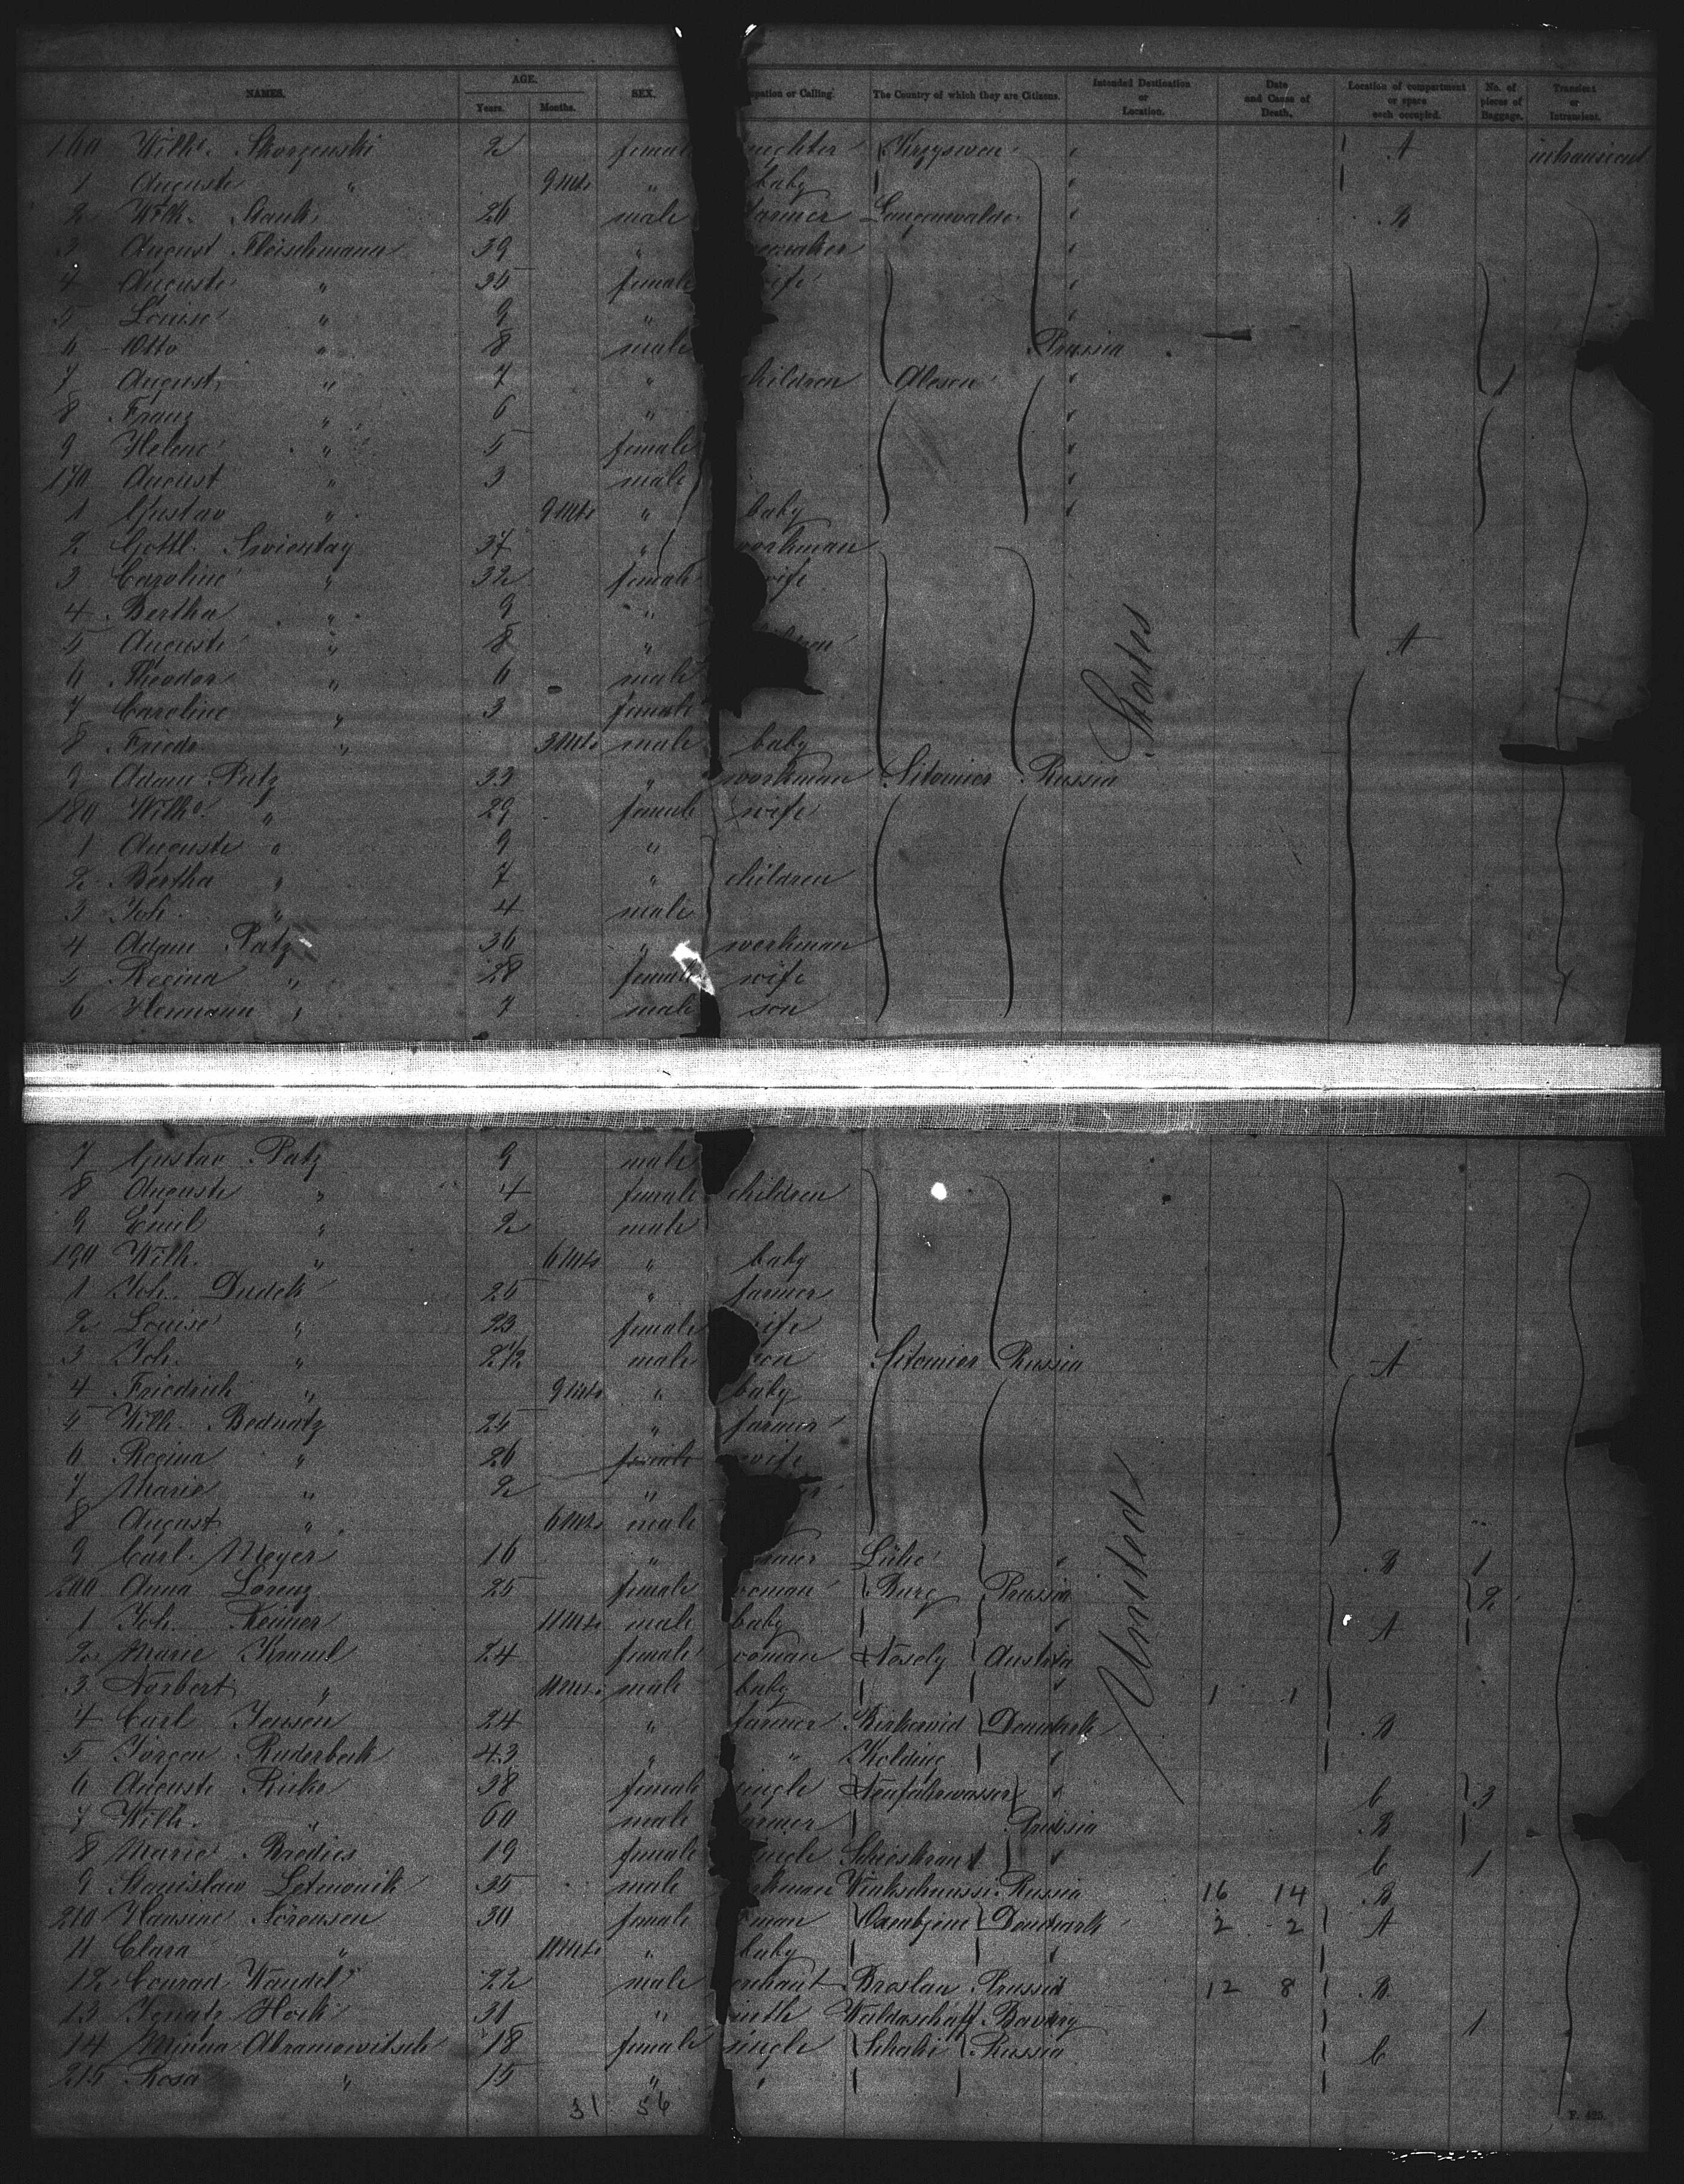 NAMES. AGE. Years. Months. SEX. upation or Calling. The Country of which they are Citizens. Intended Destination or Location. Date and Cause of Death. Location of compartment or space each occupied. No. of pieces of Baggage. Transient or Intransient.
160 Wilhe. Skorzenski 2 female ughter A intransient
1 Auguste " 9 Mts " baby
2 Wilh. 26 male farmer Langenwalde B
3 August Fleischmann 39 " emaker
4 Auguste " 35 female wife
5 Louise " 9 "
6 Otto " 8 male Prussia
7 August " 7 " children
8 Franz " 6 "
9 Helene " 5 female
170 August " 3 male
1 Gustav " 9 Mts " baby
2 Gottl. Swientay 37 " workman
3 Caroline " 32 female wife
4 Bertha " 9 "
5 Auguste " 8 " A
6 Theodor " 6 male
7 Caroline " 3 female
8 Friedr. " 3 Mts male baby
9 Adam Patz 33 " workman Sitomier Russia
180 Wilhe. " 29 female wife
1 Auguste " 9 "
2 Bertha " 7 " children
3 Joh. " 4 male
4 Adam Patz 36 " workman
5 Regina " 28 female wife
6 Hermann " 7 male son
States
7 Gustav Patz 9 male
8 Auguste " 4 female children
9 Emil " 2 male
190 Wilh. " 6 Mts " baby
1 Joh. Dudek 25 " farmer
2 Louise " 23 female wife
3 Joh. " 2 1/2 male son Sitomier Russia A
4 Friedrich " 9 Mts " baby
5 Wilh. Bednatz 25 " farmer
6 Regina " 26 female wife
7 Marie " 2 "
8 August " 6 Mts male
9 Carl Meyer 16 " Lühe B 1
200 Anna Lorenz 25 female woman Burg Prussia 2
1 Joh. Reimer 11 Mts male baby A
2 Marie Kraml 24 female woman Austria
3 Norbert " 11 Mts. male baby 1 1
4 Carl Jensen 24 " farmer Denmark B
5 Jörgen Ruderbeck 43 " " Kolding
6 Auguste 38 female single Neufahrwasser C 3
7 Wilh. " 60 male farmer Prussia B
8 Marie Brodies 19 female single C 1
9 Stanislaw Letmonik 35 male rkman Russia 16 14 B
210 Hansine Sörensen 30 female woman Denmark 2 2 A
11 Clara " 11 Mts " baby
12 Conrad Wandel 22 male erchant Breslau Prussia 12 8 B
13 Ignatz Hock 31 " Bavary 1
14 Minna Abramowitsch 18 female single Schaki Russia C
215 Rosa " 15 " "
United
31 56
F. 425.